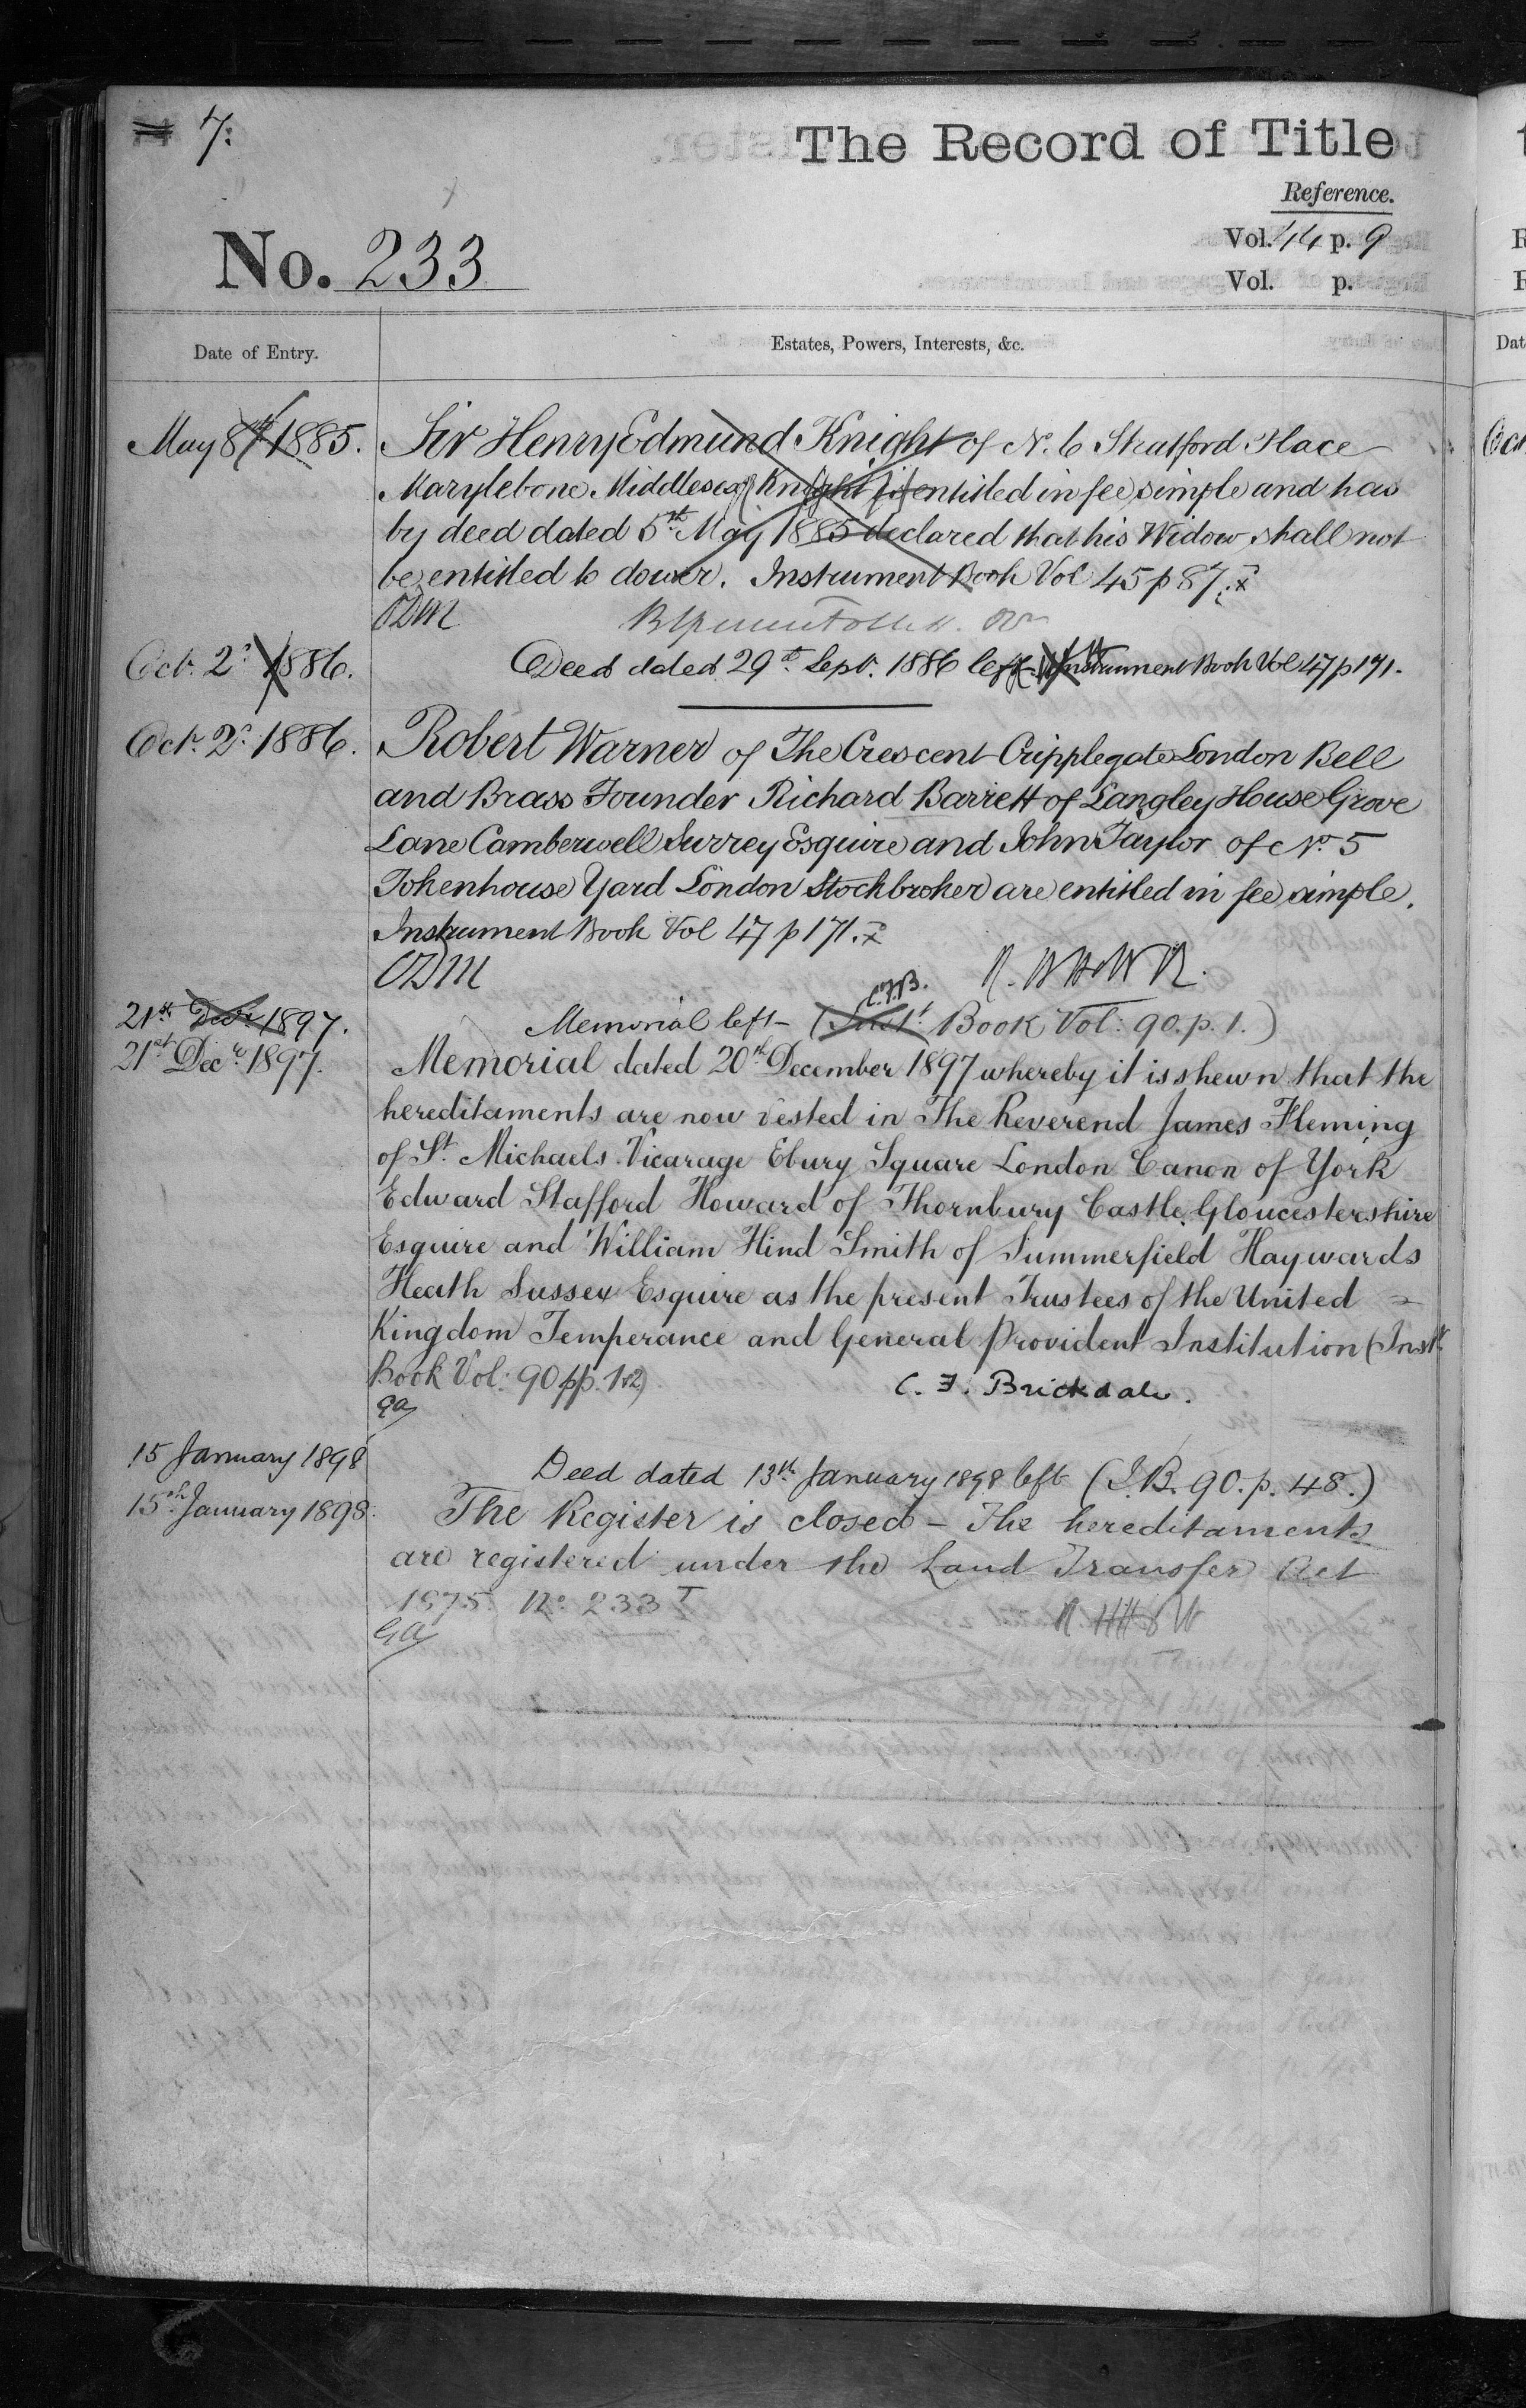 7.
The Record of Title
Reference.
Vol. 44 p. 9
No. 233
Vol. p.
Date of Entry.
Estates, Powers, Interests, &c.
May 8th 1885. Sir Henry Edmund Knight of No. 6 Stratford Place
Marylebone Middlesex Knight is entitled in fee simple and has
by deed dated 5th May 1885 declared that his Widow shall not
be entitled to dower. Instrument Book Vol 45 p 87.
ODM
Oct. 2d 1886. Deed dated 29th Sept. 1886 left Instrument Book Vol 47 p 171.
Oct. 2d 1886. Robert Warner of The Crescent Cripplegate London Bell
and Brass Founder Richard Barrett of Langley House Grove
Lane Camberwell Surrey Esquire and John Taylor of No. 5
Tokenhouse Yard London Stockbroker are entitled in fee simple.
Instrument Book Vol 47 p 171.
ODM
C.F.B.
21st Decr 1897. Memorial left - (Instt. Book Vol: 90. p. 1.)
21st Decr 1897. Memorial dated 20th December 1897 whereby it is shewn that the
hereditaments are now vested in The Reverend James Fleming
of St. Michaels Vicarage Ebury Square London Canon of York
Edward Stafford Howard of Thornbury Castle, Gloucestershire
Esquire and William Hind Smith of Summerfield Haywards
Heath Sussex Esquire as the present Trustees of the United
Kingdom Temperance and General Provident Institution (Instt.
Book Vol: 90 pp. 1&2)
C. F. Brickdale.
GA
15 January 1898 Deed dated 13th January 1898 left (I.B. 90. p. 48.)
15th January 1898. The Register is closed - The hereditaments
are registered under the Land Transfer Act
1875. No. 233 I
GA